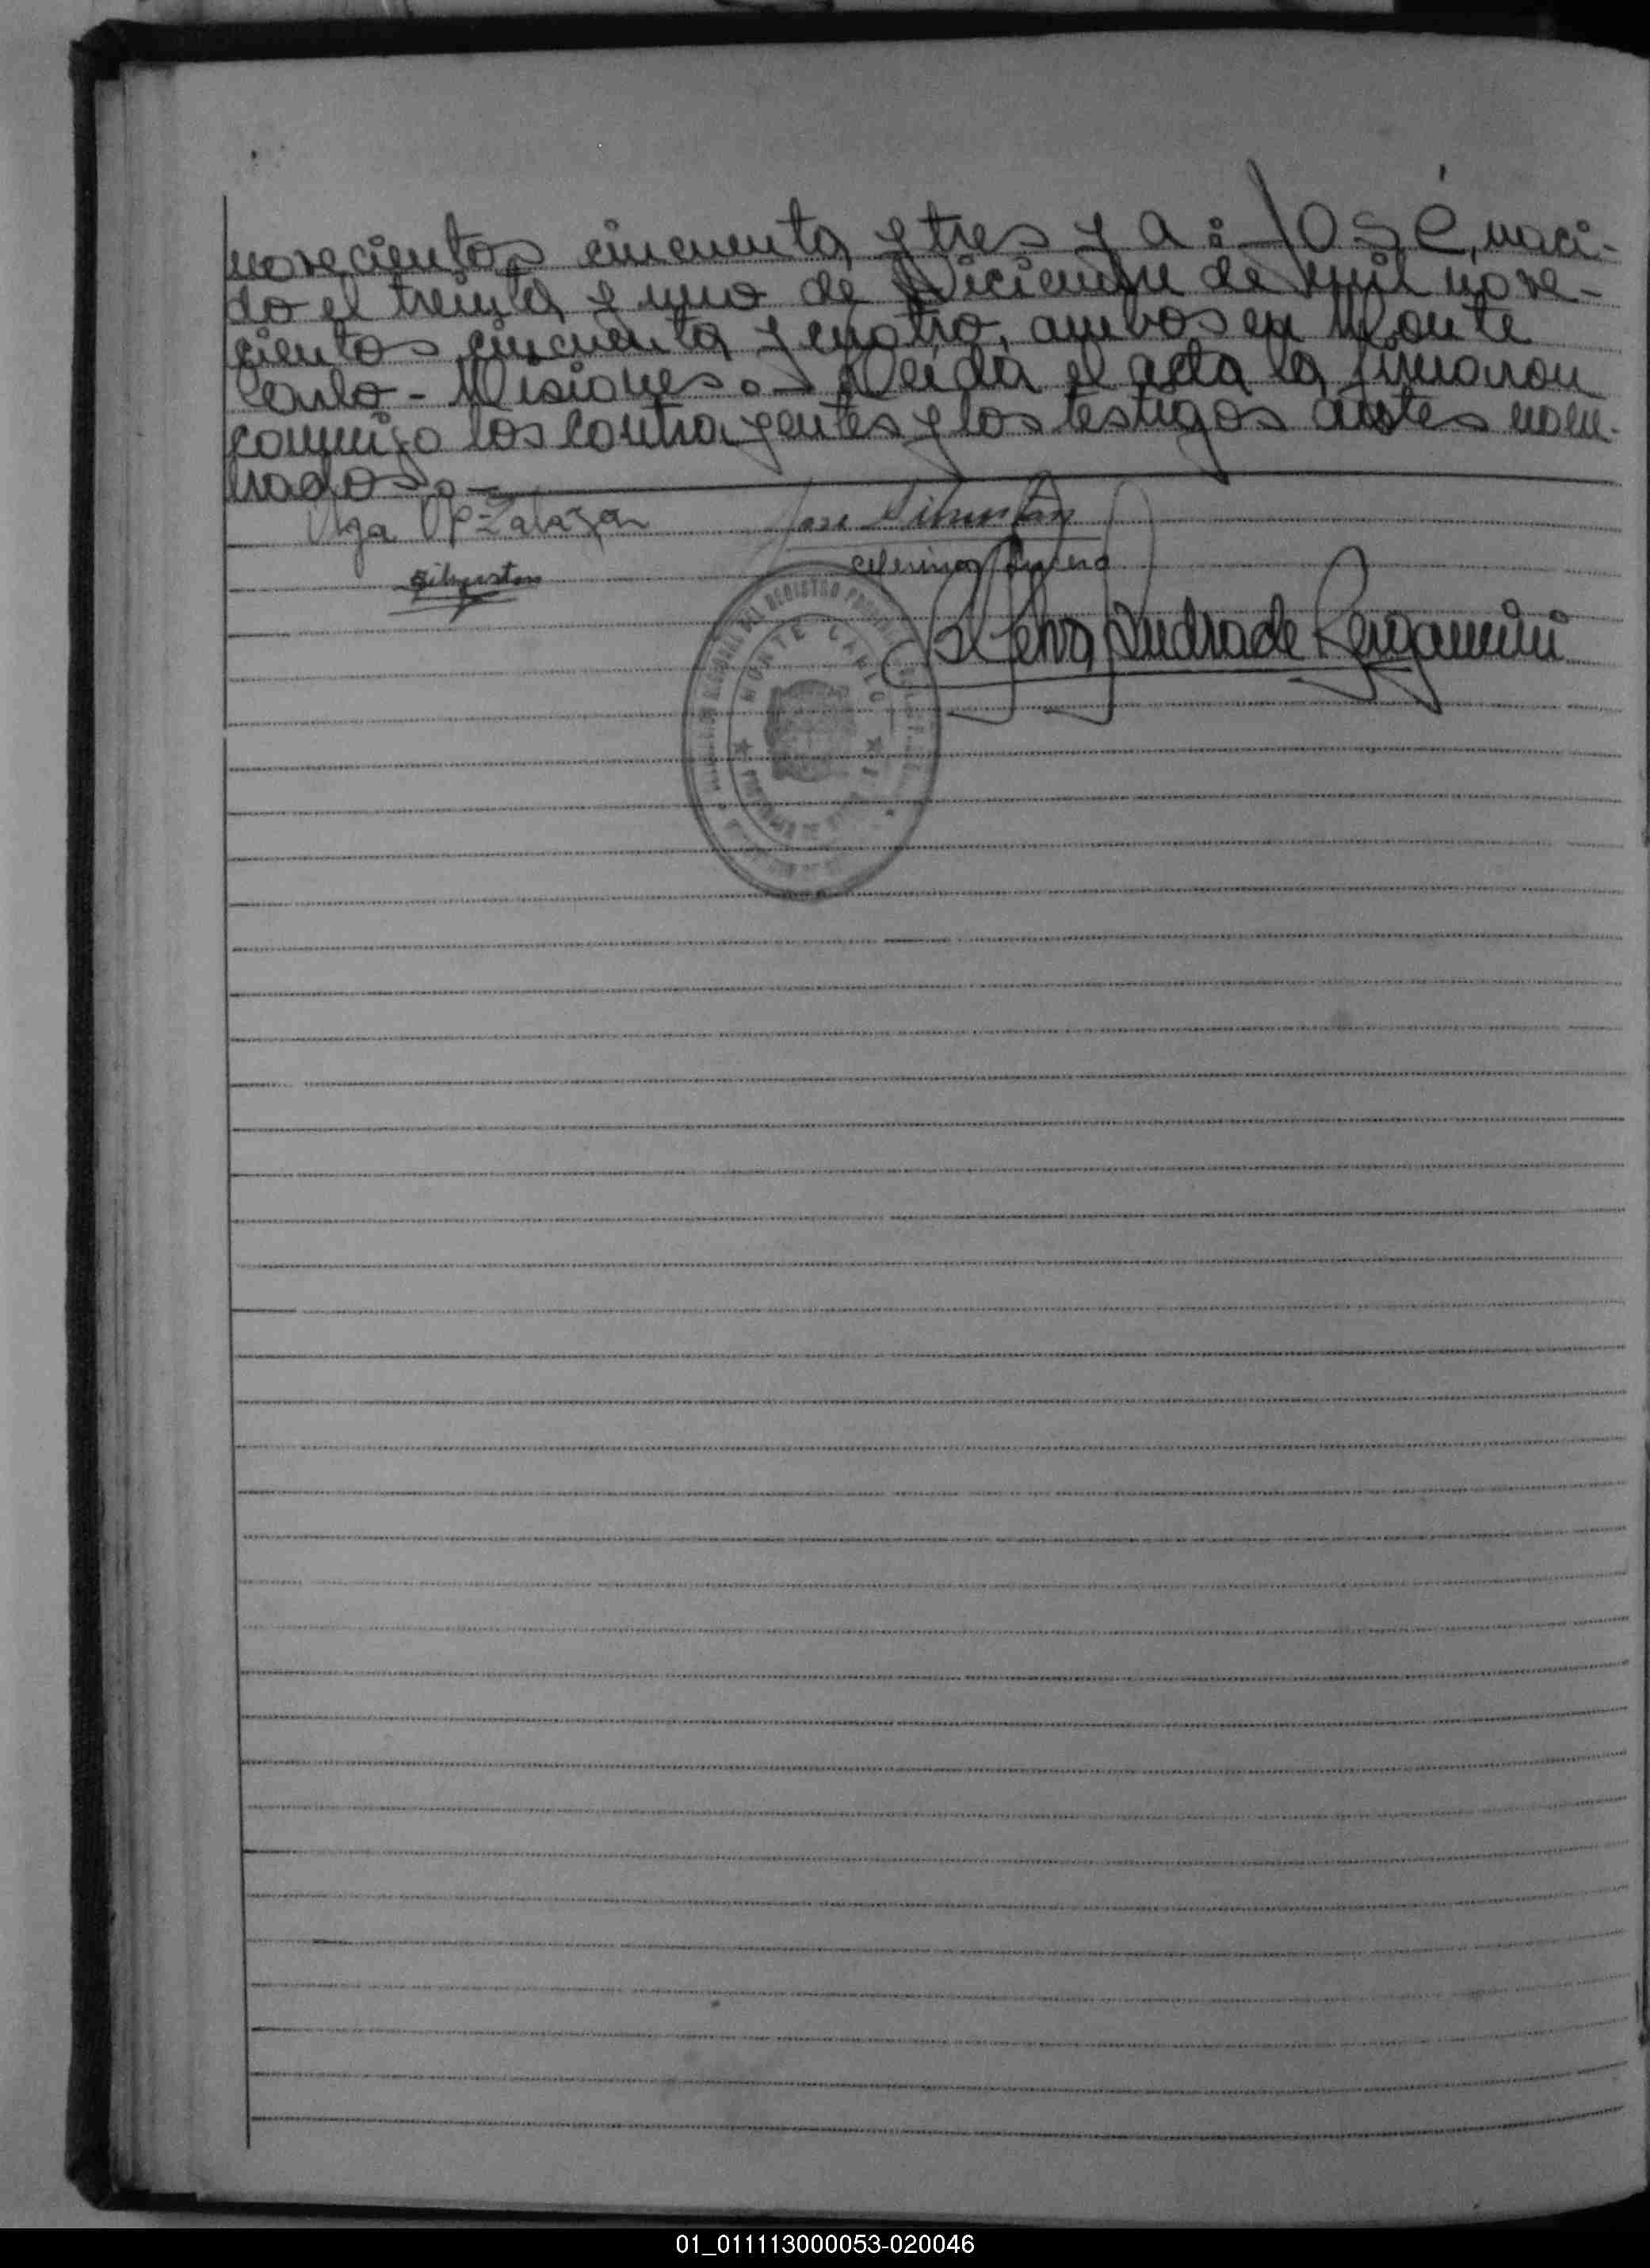 novecientos cincuenta y tres y a: JOSÉ, naci-
do el treinta y uno de Diciembre de mil nove-
cientos cincuenta y cuatro, ambos en Monte
Carlo - Misiones.- Leída el acta la firmaron
conmigo los contrayentes y los testigos antes nom-
brados.-
Olga Zalazar José
Ceferino
Selva Andrade Bergamini
DEL REGISTRO
MONTE CARLO
01_011113000053-020046